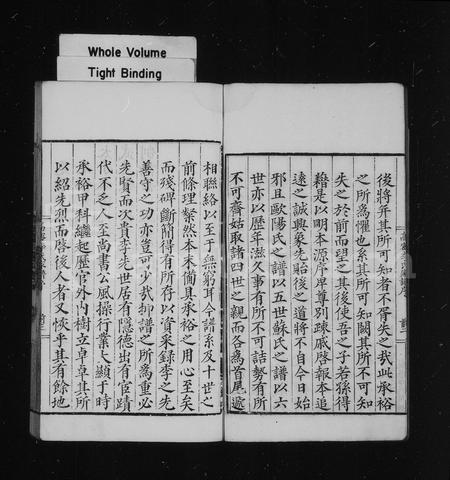 Whole Volume
Tight Binding
後將并其所可知者不胥失之哉此承裕
之所爲懼也系其所可知闕其所不可知
失之於前而望之其後使吾之子若孫得
藉是以明本源序卑尊別疎戚啓報本追
遠之誠興象先貽後之道將不自今日始
邪且歐陽氏之譜以五世蘇氏之譜以六
世亦以歷年滋久事有所不可詰勢有所
不可齊姑取諸四世之親而各爲首尾遞
相聯絡以至于無窮耳今譜系及十世之
前條理粲然本末備具承裕之用心至矣
而殘碑斷簡得有所存以資采錄李之先
善守之功亦豈可少哉抑譜之所爲重必
先賢而次貴李先世居有隱德出有宦蹟
代不乏人至尚書公風操行業大顯于時
承裕甲科繼起歷官外內樹立卓卓其所
以紹先烈而啓後人者又恢乎其有餘地